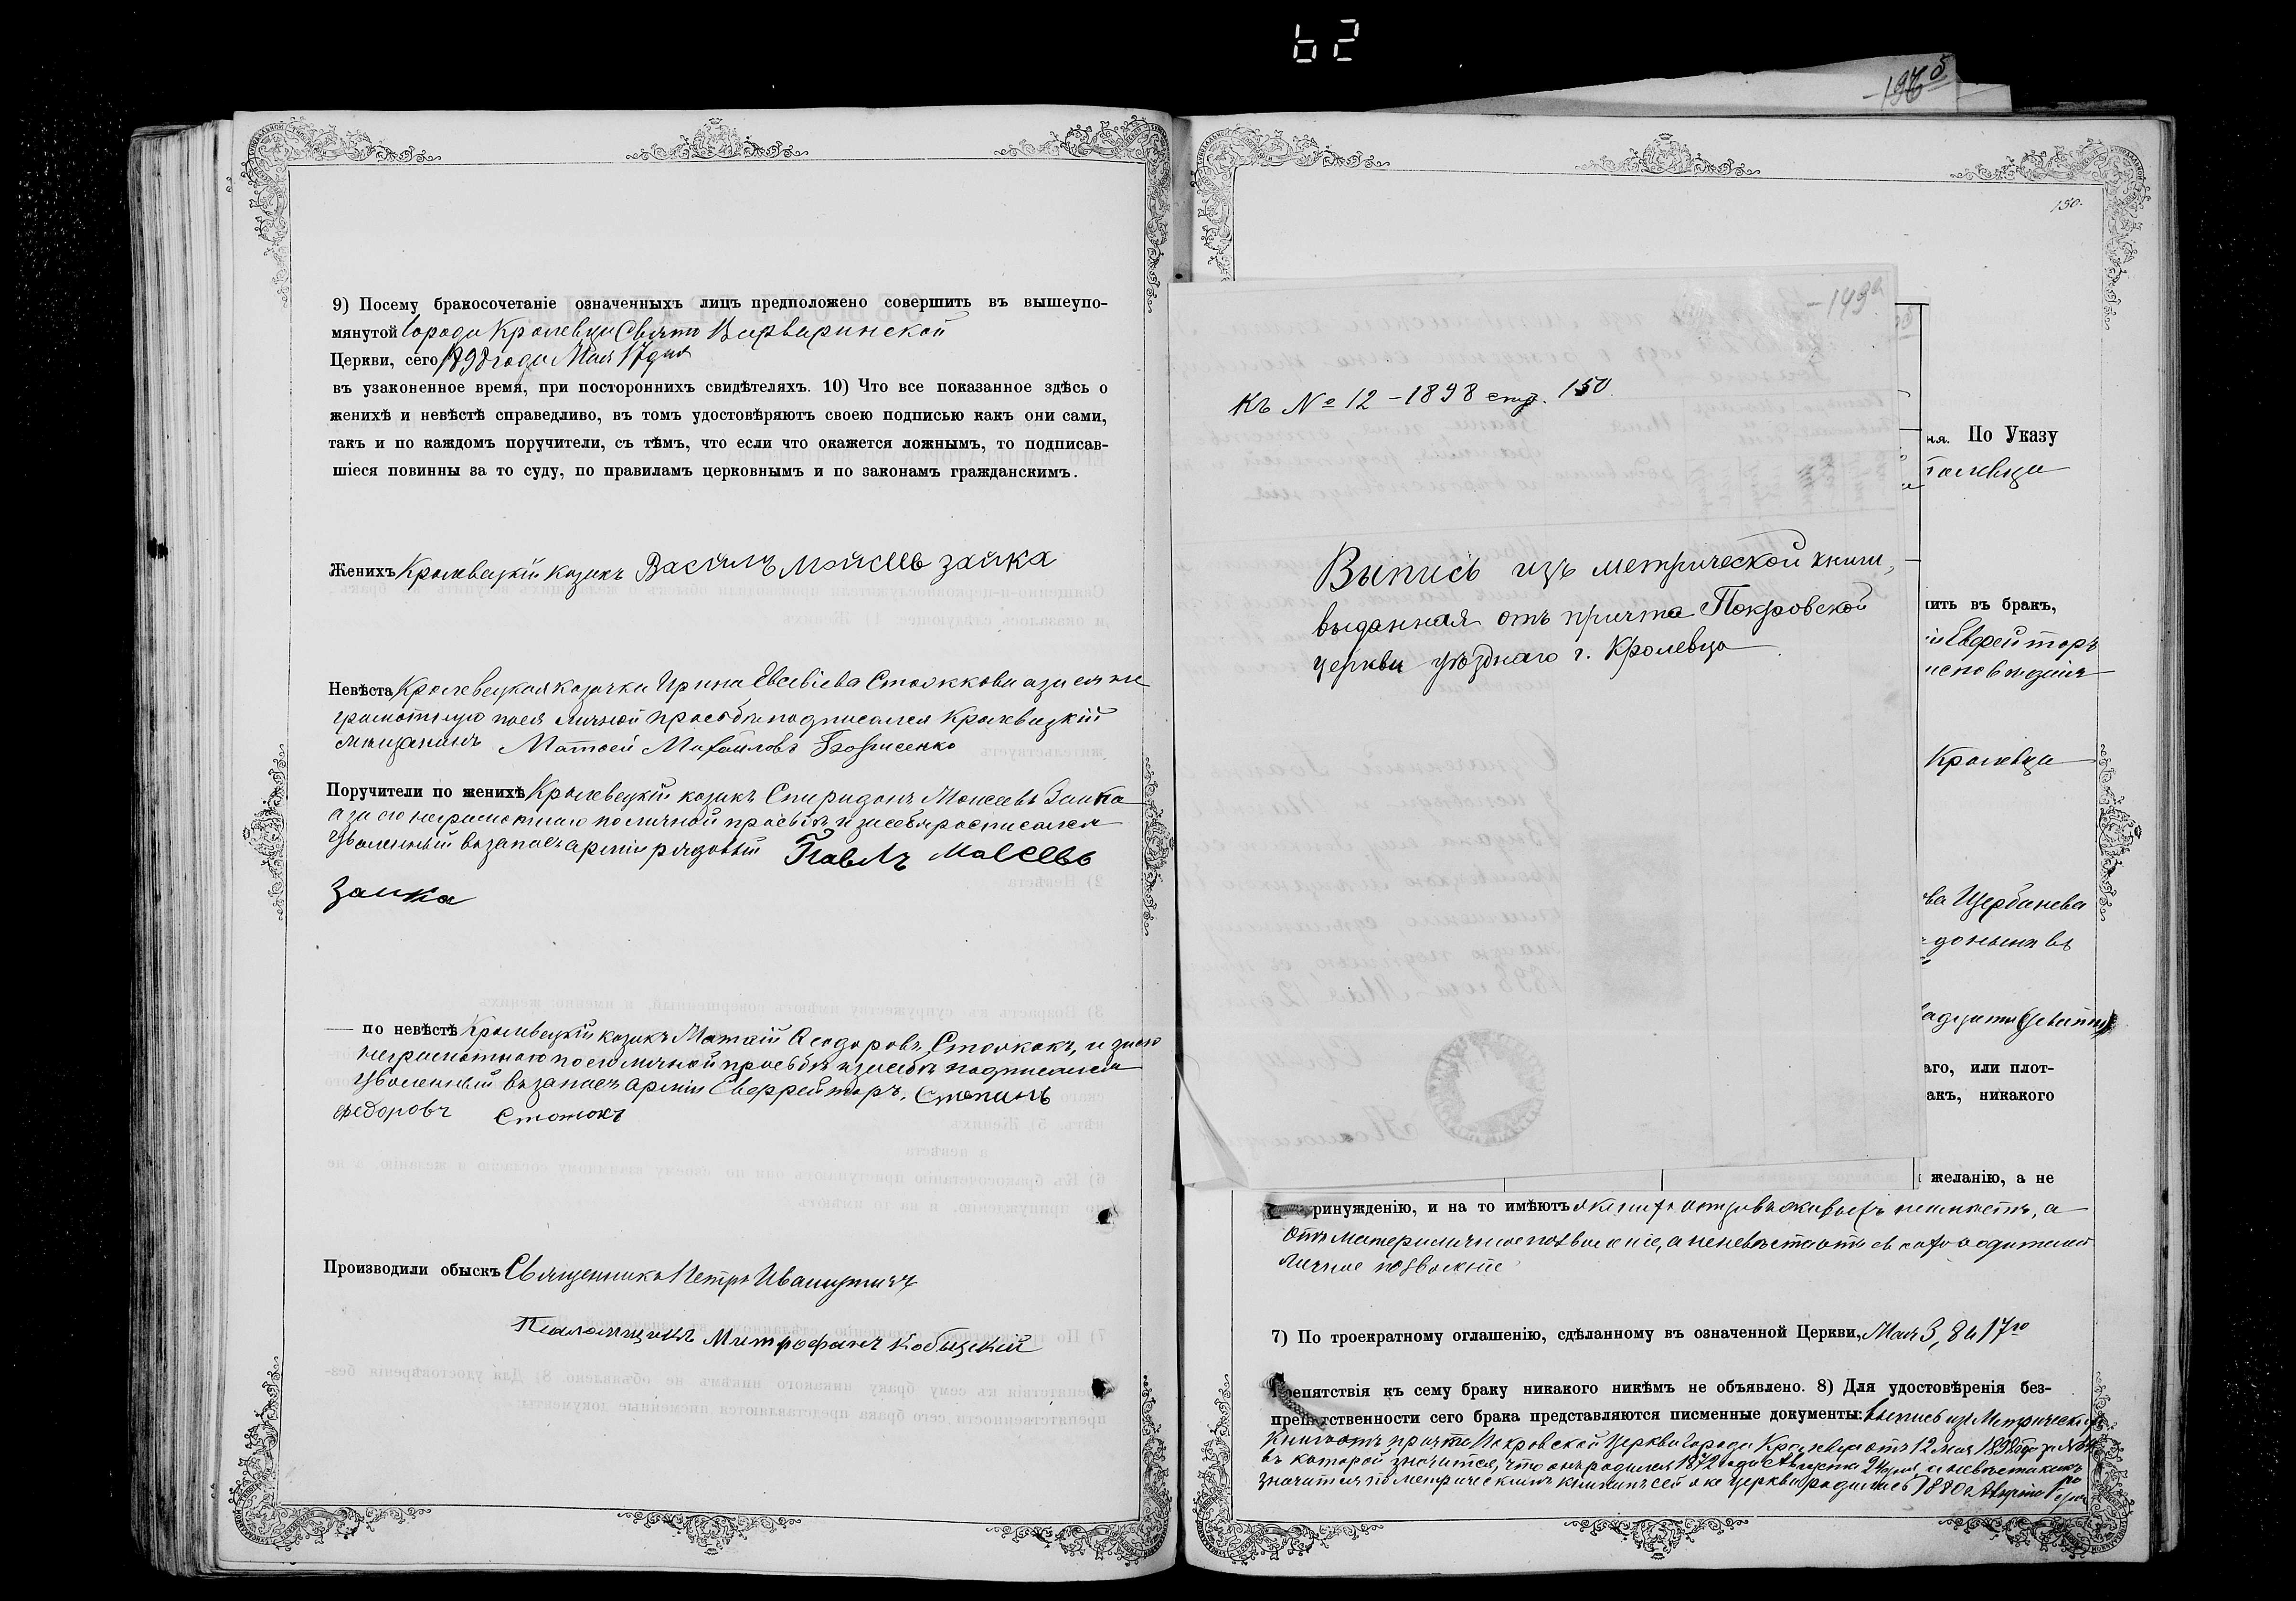 62
-196б
9) Посему бракосочетаніе означенныхъ лицъ предположено совершить въ вышеупо-
мянутой Города Кролевца Свято Варваринской
Церкви, сего 1898 года Мая 17 дня
въ узаконенное время, при постороннихъ свидѣтеляхъ. 10) Что все показанное здѣсь о
женихѣ и невѣстѣ справедливо, въ томъ удостовѣряютъ своею подписью какъ они сами,
такъ и по каждомъ поручители, съ тѣмъ, что если что окажется ложнымъ, то подписав-
шіеся повинны за то суду, по правиламъ церковнымъ и по законамъ гражданскимъ.
Женихъ Кролевецкій казакъ Василъ Мойсеевъ заика
Невѣста Кролевецкая козачка Ирина Евсевіева а за ея не
грамотную по ея личной просьбѣ подписался Кролевецкій
мѣщанинъ Матфей Михайловъ Борисенко
Поручители по женихѣ Кролевецкій казакъ Спиридонъ Моисеевъ Заика
а за его неграмотнаго по личной просьбѣ и за себя росписался
Уволенный въ запасъ арміи рядовый Павелъ Мосеевъ
Заика
— по невѣстѣ Кролевецкій казакъ Ѳеодоровъ Стоякокъ, и за его
неграмотнаго по его личной просьбѣ и за себя подписался
Уволенный въ запасъ арміи Ефрейторъ, Степанъ
Федоровъ
Производили обыскъ Священникъ Петръ
Псаломщикъ Митрофанъ Кобыцскій
150.
-149а
Къ № 12 -1898 стр. 150.
Выпись изъ метрической книги,
выданная отъ причта Покровской
церкви уѣзднаго г. Кролевца
ня. По Указу
ролевца
пить въ бракъ,
Евфейторъ
исповѣданія
Кролевца
ва Щербанева
донынѣ въ
адцати девяти
аго, или плот-
акъ, никакого
желанію, а не
ринужденію, и на то имѣютъ женихъ отца въ живыхъ не имѣетъ, а
отъ матери личное позволеніе, а невѣста отъ своихъ родителей
личное позволеніе
7) По троекратному оглашенію, сдѣланному въ означенной Церкви, Мая 3, 8 и 17го
репятствія къ сему браку никакого никѣмъ не объявлено. 8) Для удостовѣренія без-
препятственности сего брака представляются писменные документы: выпись изъ Метрической
книги отъ причта Покровской Церкви Города Кролевца отъ 12 мая 1898 года за №
въ которой значится, что онъ родился 1872 года Августа 24 дня, а невѣста какъ
значится по метрическимъ книгамъ сей же церкви родилась 1880 г. Апрѣля